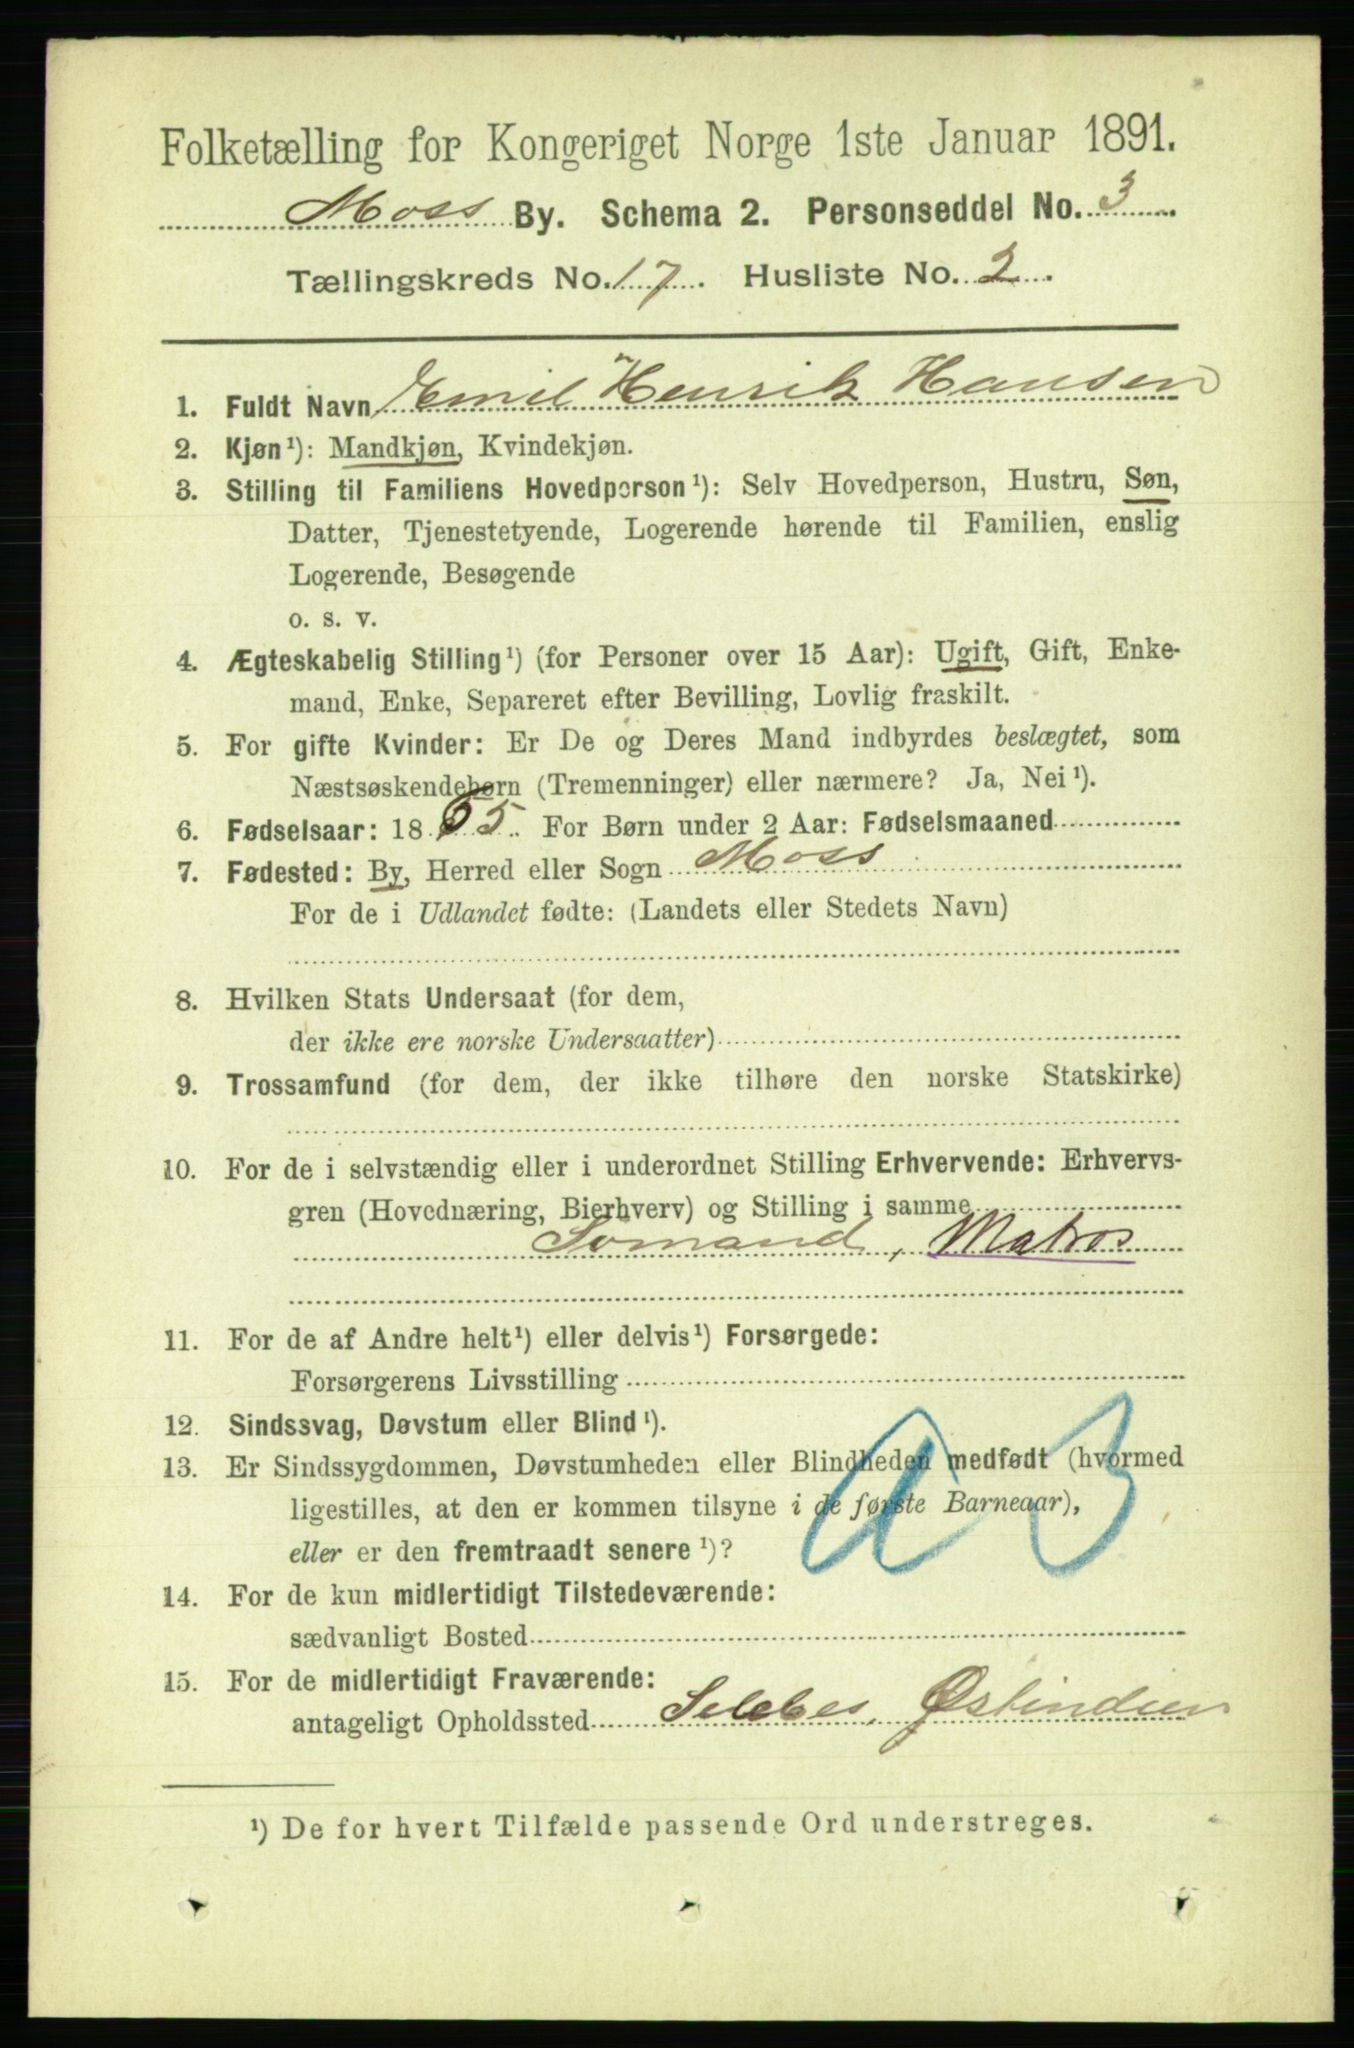 Folketælling for Kongeriget Norge 1ste Januar 1891.
Moss By. Schema 2. Personseddel No. 3
Tællingskreds No. 17. Husliste No. 2.
1. Fuldt Navn Emil Henrik Hansen
2. Kjøn¹): Mandkjøn, Kvindekjøn.
3. Stilling til Familiens Hovedperson¹): Selv Hovedperson, Hustru, Søn,
Datter, Tjenestetyende, Logerende hørende til Familien, enslig
Logerende, Besøgende
o. s. v.
4. Ægteskabelig Stilling¹) (for Personer over 15 Aar): Ugift, Gift, Enke-
mand, Enke, Separeret efter Bevilling, Lovlig fraskilt.
5. For gifte Kvinder: Er De og Deres Mand indbyrdes beslægtet, som
Næstsøskendebørn (Tremenninger) eller nærmere? Ja, Nei¹).
6. Fødselsaar: 1865. For Børn under 2 Aar: Fødselsmaaned
7. Fødested: By, Herred eller Sogn Moss
For de i Udlandet fødte: (Landets eller Stedets Navn)
8. Hvilken Stats Undersaat (for dem,
der ikke ere norske Undersaatter)
9. Trossamfund (for dem, der ikke tilhøre den norske Statskirke)
10. For de i selvstændig eller i underordnet Stilling Erhvervende: Erhvervs-
gren (Hovednæring, Bierhverv) og Stilling i samme
Sömand, Matros
11. For de af Andre helt¹) eller delvis¹) Forsørgede:
Forsørgerens Livsstilling
12. Sindssvag, Døvstum eller Blind¹).
13. Er Sindssygdommen, Døvstumheden eller Blindheden medfødt (hvormed
ligestilles, at den er kommen tilsyne i de første Barneaar),
eller er den fremtraadt senere¹)?
14. For de kun midlertidigt Tilstedeværende:
sædvanligt Bosted
15. For de midlertidigt Fraværende:
antageligt Opholdssted Selebes, Østindien
¹) De for hvert Tilfælde passende Ord understreges.